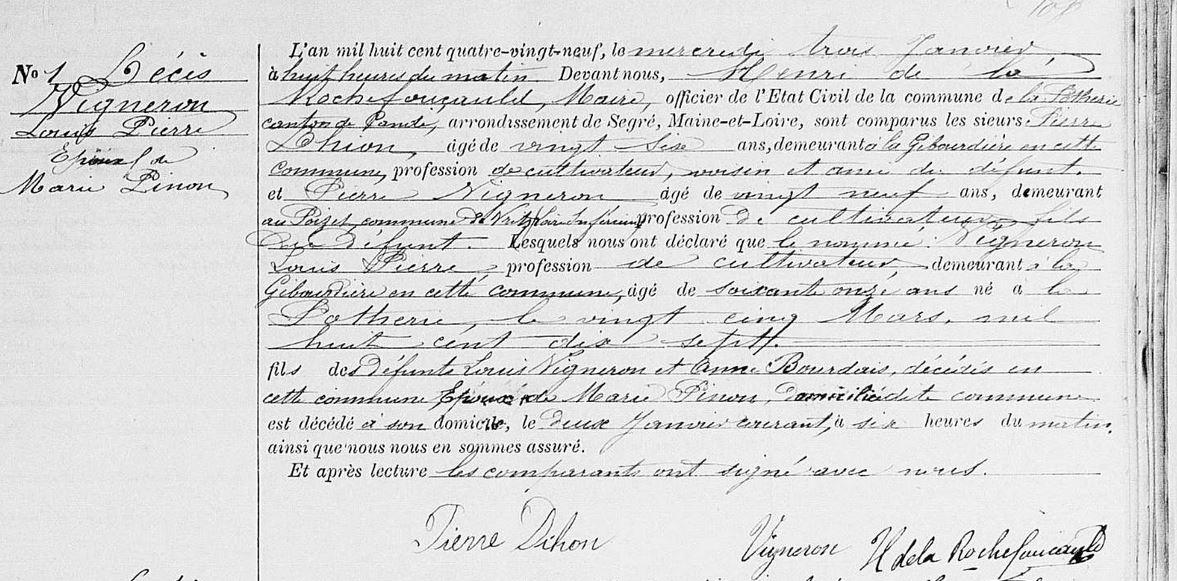 108
L'an mil huit cent quatre-vingt-neuf, le mercredi trois Janvier
à huit heures du matin Devant nous, Henri de la
Rochefoucauld, Maire, officier de l'Etat Civil de la commune de la Potherie
canton de Candé, arrondissement de Segré, Maine-et-Loire, sont comparus les sieurs Pierre
Dihon, âgé de vingt six ans, demeurant à la Gibourdière en cette
commune, profession de cultivateur, voisin et ami du défunt.
et Pierre Vigneron âgé de vingt neuf ans, demeurant
au Poizet, commune de Vritz, Loire Inférieure profession de cultivateur, fils
du défunt. Lesquels nous ont déclaré que le nommé Vigneron
Louis Pierre, profession de cultivateur, demeurant à la
Gibourdière en cette commune, âgé de soixante onze ans né à la
Potherie, le vingt cinq Mars, mil
huit cent dix sept.
fils des défunts Louis Vigneron et Anne Bourdais, décédés en
cette commune Epoux de Marie Pinon, domiciliée dite commune
est décédé à son domicile, le deux Janvier courant, à six heures du matin,
ainsi que nous nous en sommes assuré.
Et après lecture les comparants ont signé avec nous.
Pierre Dihon Vigneron H de la Rochefoucauld
No 1 Décès
Vigneron
Louis Pierre
Epoux de
Marie Pinon